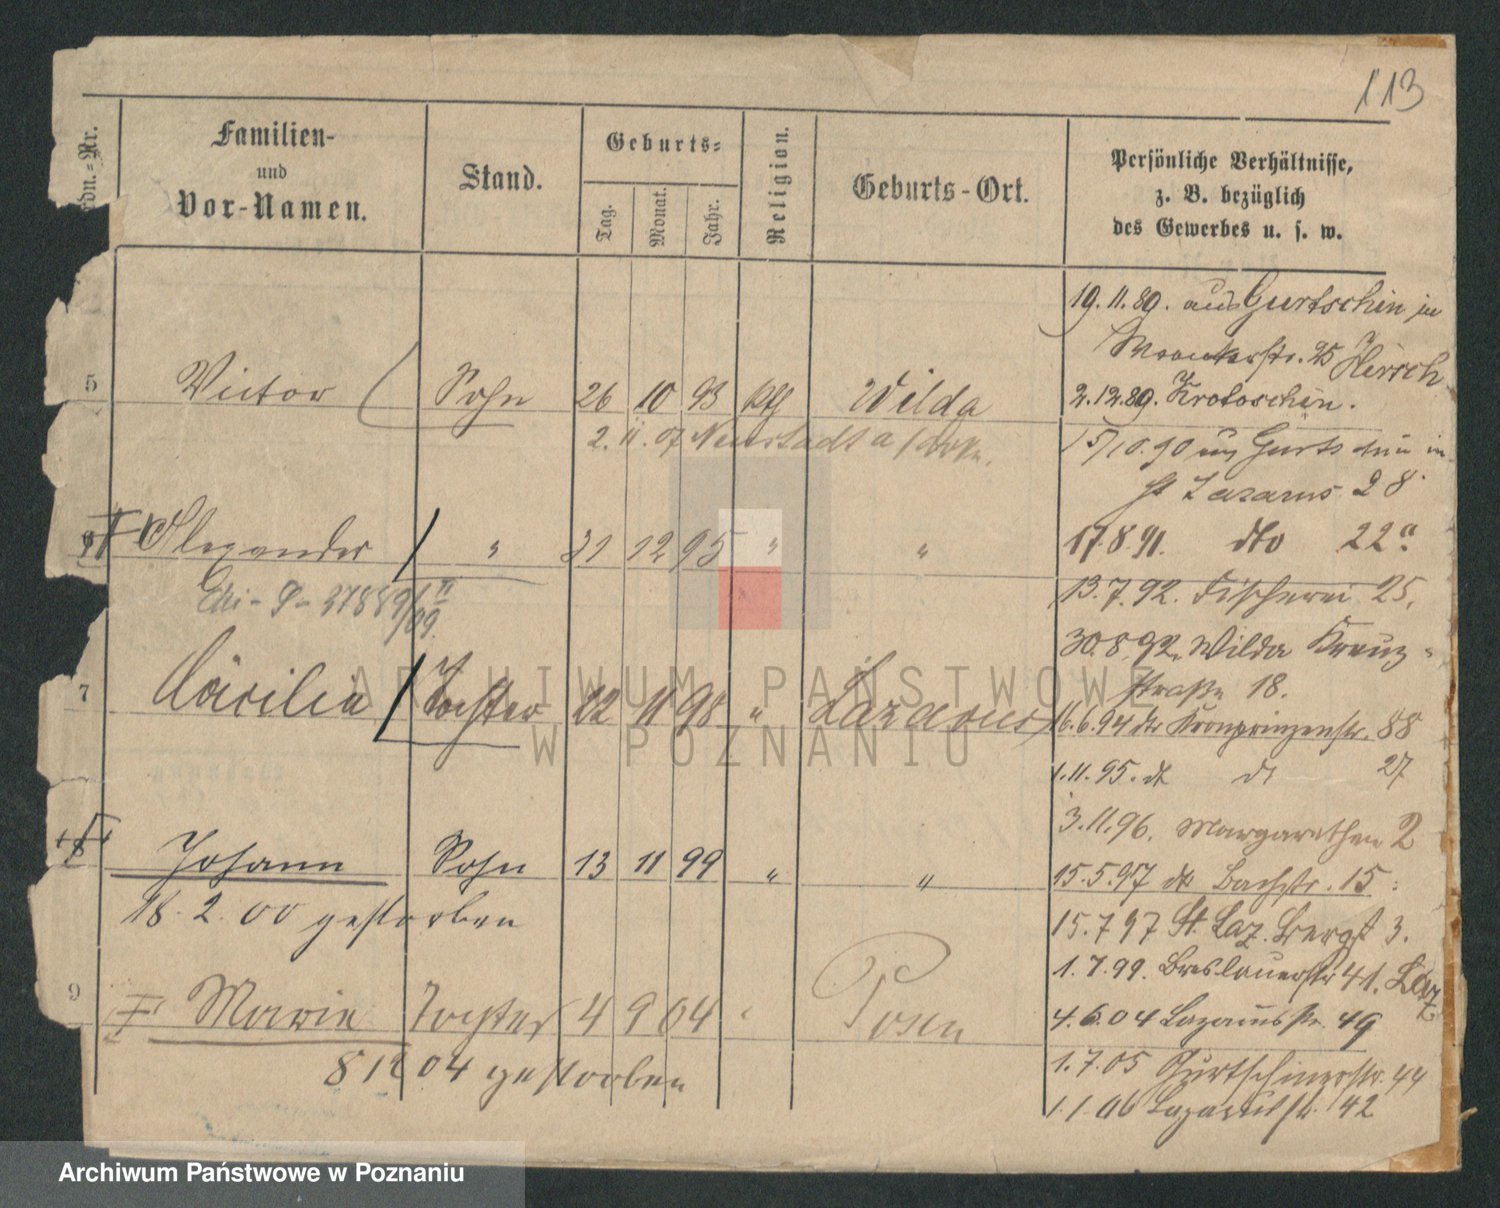 113
Ordn.-Nr.
Familien-
und
Vor-Namen.
Stand.
Geburts-
Tag.
Monat.
Jahr.
Religion.
Geburts-Ort.
Persönliche Verhältnisse,
z. B. bezüglich
des Gewerbes u. s. w.
5 Victor Sohn 26 10 93 kth Wilda
2. 11. 07 Neustadt a/
6 Alexander " 31 12 95 " "
37889/09.
7 Cäcilia Tochter 22 11 98 " Lazarus
8 Johann Sohn 13 11 99 " "
18. 2. 00 gestorben
9 Marie Tochter 4 9 04 " Posen
8 12 04 gestorben
19. 11. 89. aus Gurtschin in
Wronkerstr. 25 Hirsch
2.12.89. Krotoschin.
15/10.90 aus Gurtschin in
St Lazarus 28
17.8.91. dto 22a.
13.7.92. Fischerei 25.
30.8.92. Wilda Kreuz-
straße 18.
16.6.94 dto Kronprinzenstr. 88
1.11.95. dt dt 27
3.11.96. Margarethen 2
15.5.97 dto Bachstr. 15.
15.7.97 St. Laz. Bergst 3.
1.7.99. Breslauerstr 41. Laz
4.6.04 Lazarusstr. 49
1.7.05 Gurtschinerstr. 44
1.1.06 Lazarusstr. 42
ARCHIWUM PAŃSTWOWE
W POZNANIU
Archiwum Państwowe w Poznaniu